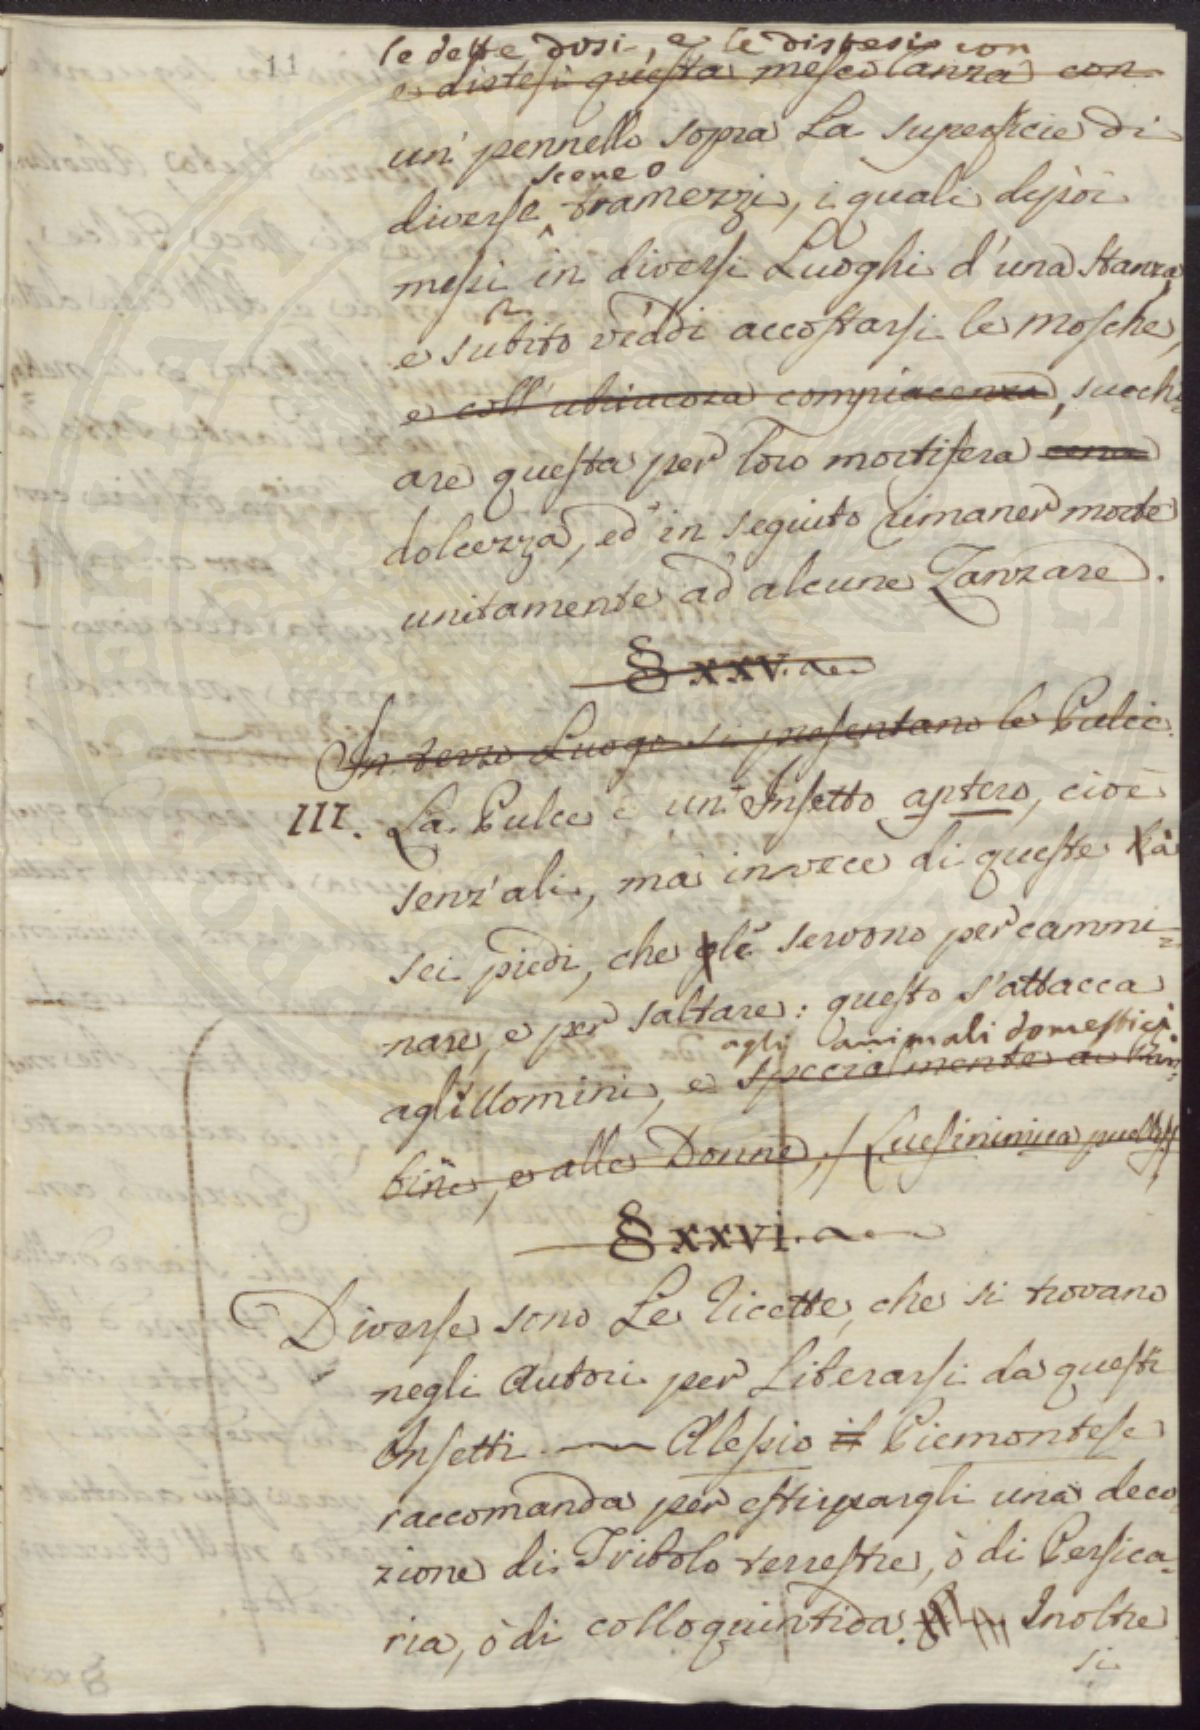 11
le dette dosi, e le distesi con
e distesi questa mescolanza con
un' pennello sopra La superficie di
scene o
diverse tramezzi, i quali dipòi
mesi in diversi Luoghi d'una stanza,
e subito viddi accostarsi le mosche,
e coll' compiacenza, succhi-
are questa per loro mortifera cena
dolcezza, ed in seguito rimaner morte
unitamente ad alcune Zanzare.
§ XXV.
In terzo Luogo si presentano le Pulci
III. La Pulce è un' Insetto aptero, cioè
senz'ali, ma in vece di queste hà
sei piedi, che gli servono per cammi-
nare, e per saltare: questo s'attacca
agli animali domestici.
agl'Uomini, e specialmente ai Bam-
bini, e alle Donne,
§ XXVI.
Diverse sono Le ricette, che si trovano
negli Autori per Liberarsi da questi
Insetti — Alessio il Piemontese
raccomanda per estirpargli una deco-
zione di Tribolo terrestre, ò di Persica-
ria, ò di colloquintida. Inoltre
si